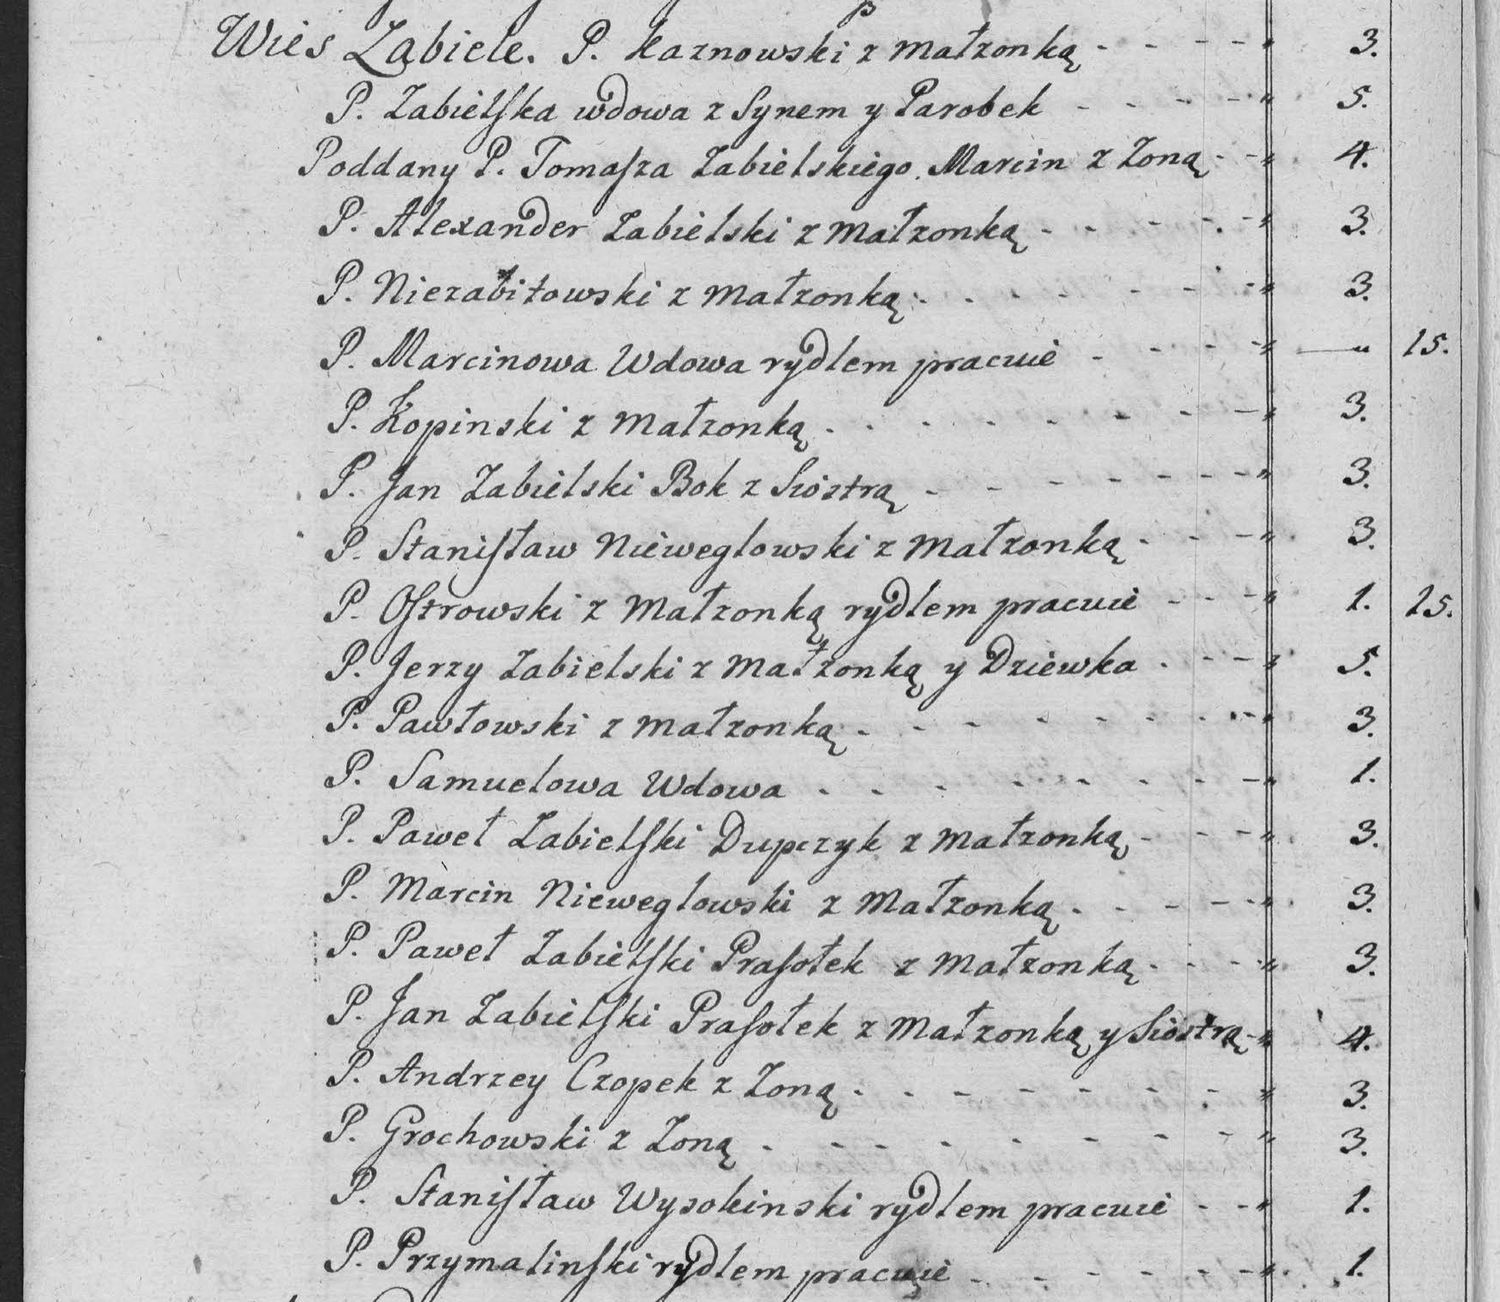 Wies Zabiele. P. Kaznowski z Małzonką - - - - " 3.
P. Zabielska wdowa z Synem y Parobek - - - - " 5.
Poddany P. Tomasza Zabielskiego. Marcin z Zoną - - " 4.
P. Alexander Zabielski z Małzonką - - - - " 3.
P. Niezabitowski z Małzonką - - - - " 3.
P. Marcinowa Wdowa rydlem pracuie - - - - " — " 15.
P. Kopinski z Małzonką - - - - " 3.
P. Jan Zabielski Bok z Siostrą - - - - " 3.
P. Stanisław Nieweglowski z Małzonką - - - " 3.
P. Ostrowski z Małzonką rydlem pracuie - - - " 1. 15.
P. Jerzy Zabielski z Małzonką y Dziewka - - - " 5.
P. Pawłowski z Małzonką - - - - " 3.
P. Samuelowa Wdowa - - - - " 1.
P. Paweł Zabielski Dupczyk z Małzonką - - - " 3.
P. Marcin Nieweglowski z Małzonką - - - - " 3.
P. Paweł Zabielski Prasołek z Małzonką - - - " 3.
P. Jan Zabielski Prasołek z Małzonką y Siostrą - " 4.
P. Andrzey Czopek z Zoną - - - - " 3.
P. Grochowski z Zoną - - - - " 3.
P. Stanisław Wysokinski rydlem pracuie - - " 1.
P. Przymalinski rydlem pracuie - - - - " 1.